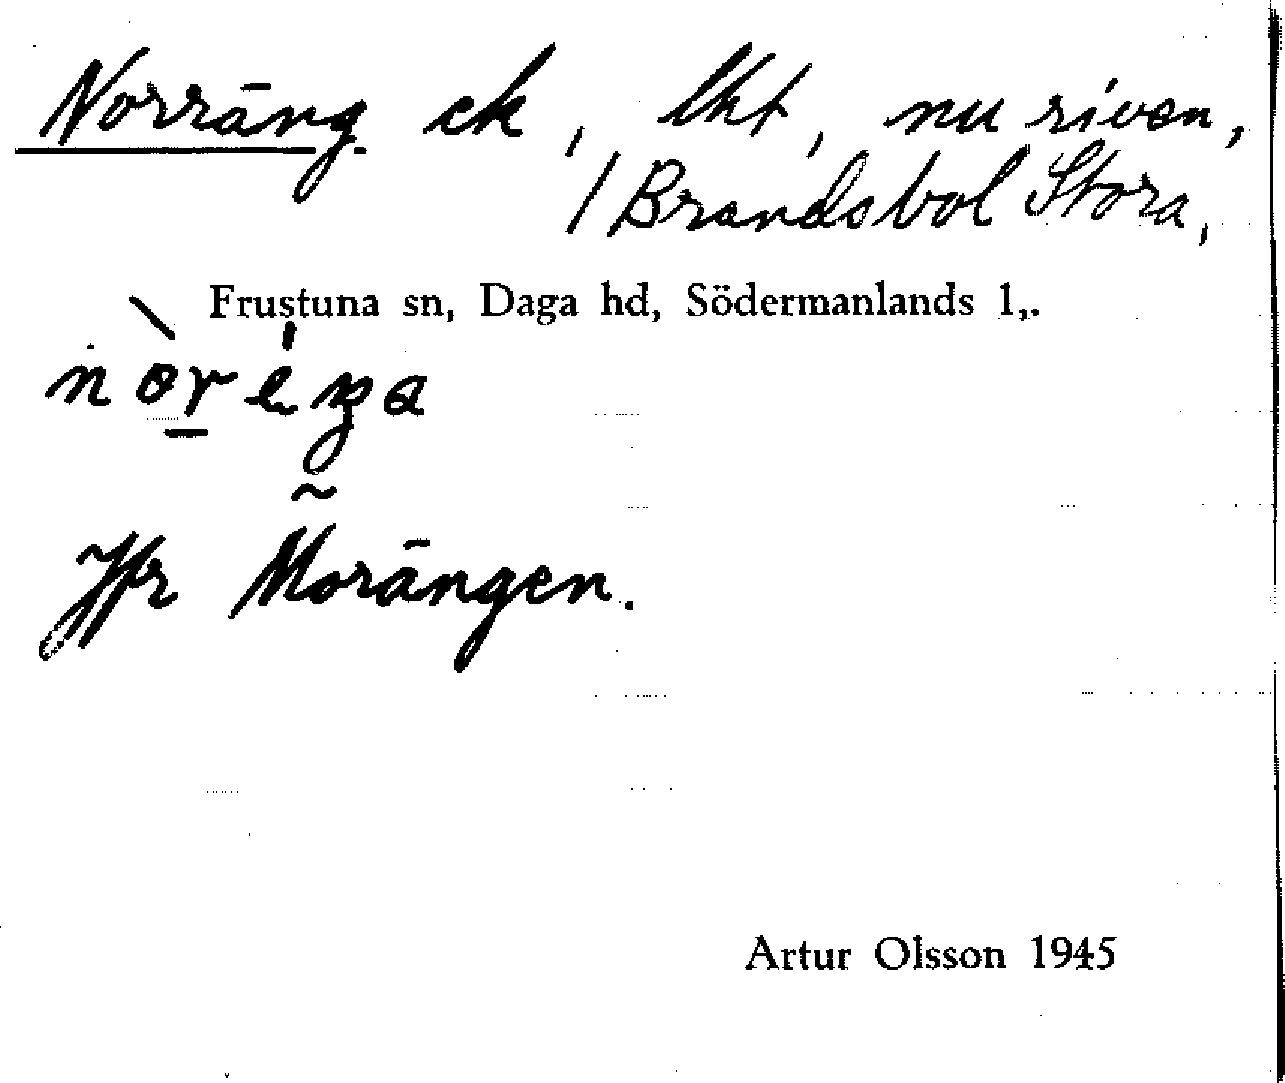 Norräng ek, lht, nu riven,
/ Brandsbol Stora,
Frustuna sn, Daga hd, Södermanlands l,.
Jfr Morängen.
Artur Olsson 1945